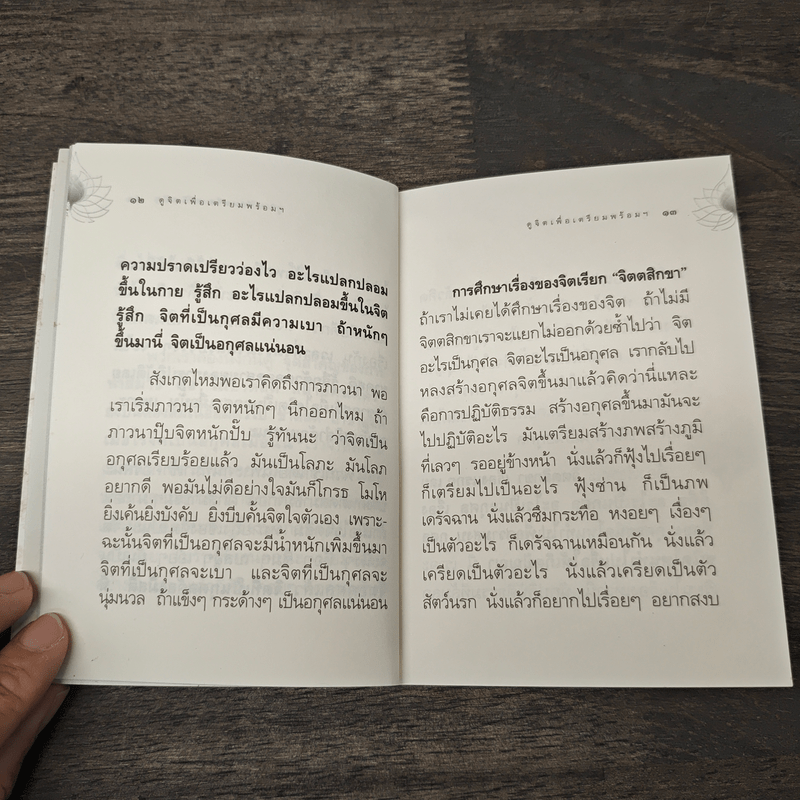 ๑๒ ดูจิตเพื่อเตรียมพร้อมฯ
ความปราดเปรียวว่องไว อะไรแปลกปลอม
ขึ้นในกาย รู้สึก อะไรแปลกปลอมขึ้นในจิต
รู้สึก จิตที่เป็นกุศลมีความเบา ถ้าหนักๆ
ขึ้นมานี่ จิตเป็นอกุศลแน่นอน
สังเกตไหมพอเราคิดถึงการภาวนา พอ
เราเริ่มภาวนา จิตหนักๆ นึกออกไหม ถ้า
ภาวนาปุ๊บจิตหนักปั๊บ รู้ทันนะ ว่าจิตเป็น
อกุศลเรียบร้อยแล้ว มันเป็นโลภะ มันโลภ
อยากดี พอมันไม่ดีอย่างใจมันก็โกรธ โมโห
ยิ่งเค้นยิ่งบังคับ ยิ่งบีบคั้นจิตใจตัวเอง เพราะ-
ฉะนั้นจิตที่เป็นอกุศลจะมีน้ำหนักเพิ่มขึ้นมา
จิตที่เป็นกุศลจะเบา และจิตที่เป็นกุศลจะ
นุ่มนวล ถ้าแข็งๆ กระด้างๆ เป็นอกุศลแน่นอน
ดูจิตเพื่อเตรียมพร้อมฯ ๑๓
การศึกษาเรื่องของจิตเรียก “จิตตสิกขา”
ถ้าเราไม่เคยได้ศึกษาเรื่องของจิต ถ้าไม่มี
จิตตสิกขาเราจะแยกไม่ออกด้วยซ้ำไปว่า จิต
อะไรเป็นกุศล จิตอะไรเป็นอกุศล เรากลับไป
หลงสร้างอกุศลจิตขึ้นมาแล้วคิดว่านี่แหละ
คือการปฏิบัติธรรม สร้างอกุศลขึ้นมามันจะ
ไปปฏิบัติอะไร มันเตรียมสร้างภพสร้างภูมิ
ที่เลวๆ รออยู่ข้างหน้า นั่งแล้วก็ฟุ้งไปเรื่อยๆ
ก็เตรียมไปเป็นอะไร ฟุ้งซ่าน ก็เป็นภพ
เดรัจฉาน นั่งแล้วซึมกระทือ หงอยๆ เงื่องๆ
เป็นตัวอะไร ก็เดรัจฉานเหมือนกัน นั่งแล้ว
เครียดเป็นตัวอะไร นั่งแล้วเครียดเป็นตัว
สัตว์นรก นั่งแล้วก็อยากไปเรื่อยๆ อยากสงบ